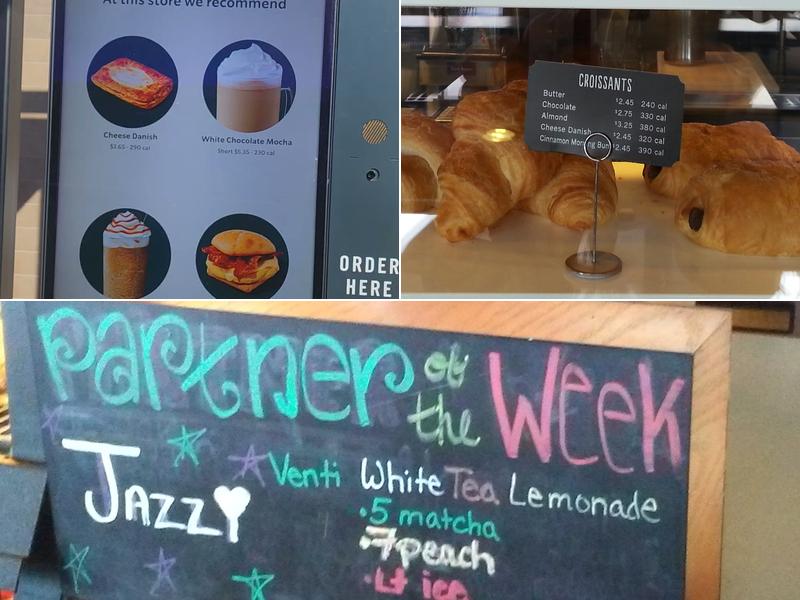 At this store we recommend
Cheese Danish
$3.65 · 290 cal
White Chocolate Mocha
Short $5.35 · 230 cal
ORDER
HERE
CROISSANTS
Butter $2.45 240 cal
Chocolate $2.75 330 cal
Almond $3.25 380 cal
Cheese Danish $2.45 320 cal
Cinnamon Morning Bun $2.45 390 cal
Partner of the Week
Jazzy
Venti White Tea Lemonade
·5 matcha
·7 peach
·Lt ice